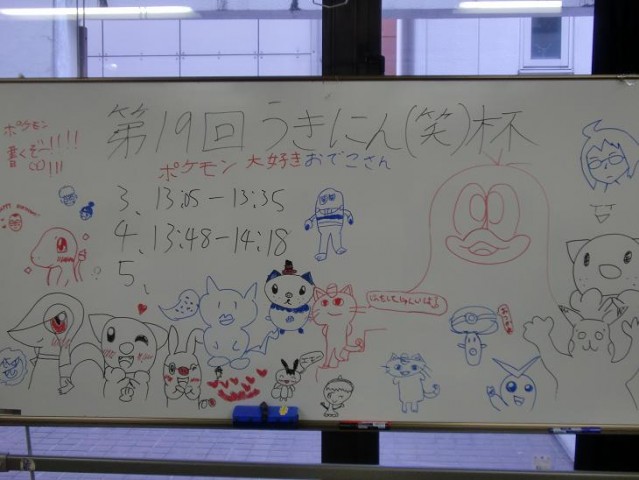 第19回うきにん(笑)杯
ポケモン
書くぞー!!!!
ポケモン 大好きおでこさん
3、13:05-13:35
4、13:48-14:18
5、